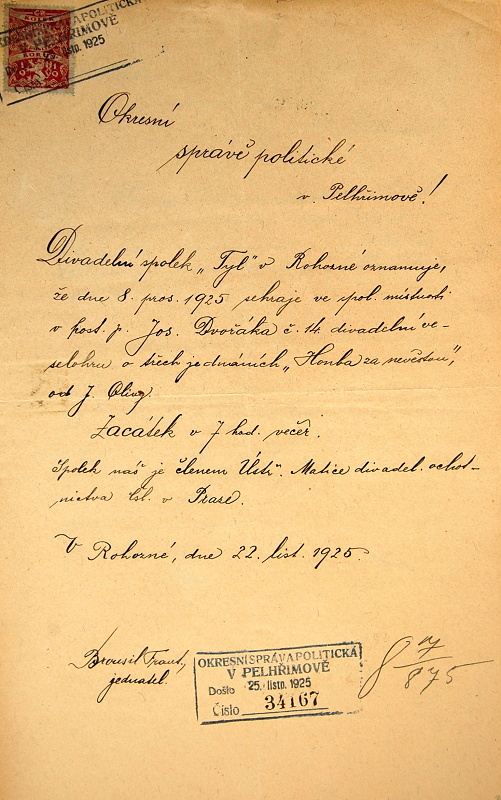 POLITICKÁ
PELHŘIMOVĚ
listn. 1925
Okresní
správě politické
v Pelhřimově!
Divadelní spolek „Tyl" v Rohozné oznamuje,
že dne 8. pros. 1925 sehraje ve spol. místnosti
v host. p. Jos. Dvořáka č. 14. divadelní ve-
selohru o třech jednáních „Honba za nevěstou",
od J. Olivy.
Začátek v 7 hod. večer.
Spolek náš je členem Ústř. Matice divadel. ochot-
nictva čsl. v Praze.
V Rohozné, dne 22. list. 1925.
Brousil Frant,
jednatel.
OKRESNÍ SPRÁVA POLITICKÁ
V PELHŘIMOVĚ
Došlo 25. listn. 1925
Číslo 34167
8 7/875